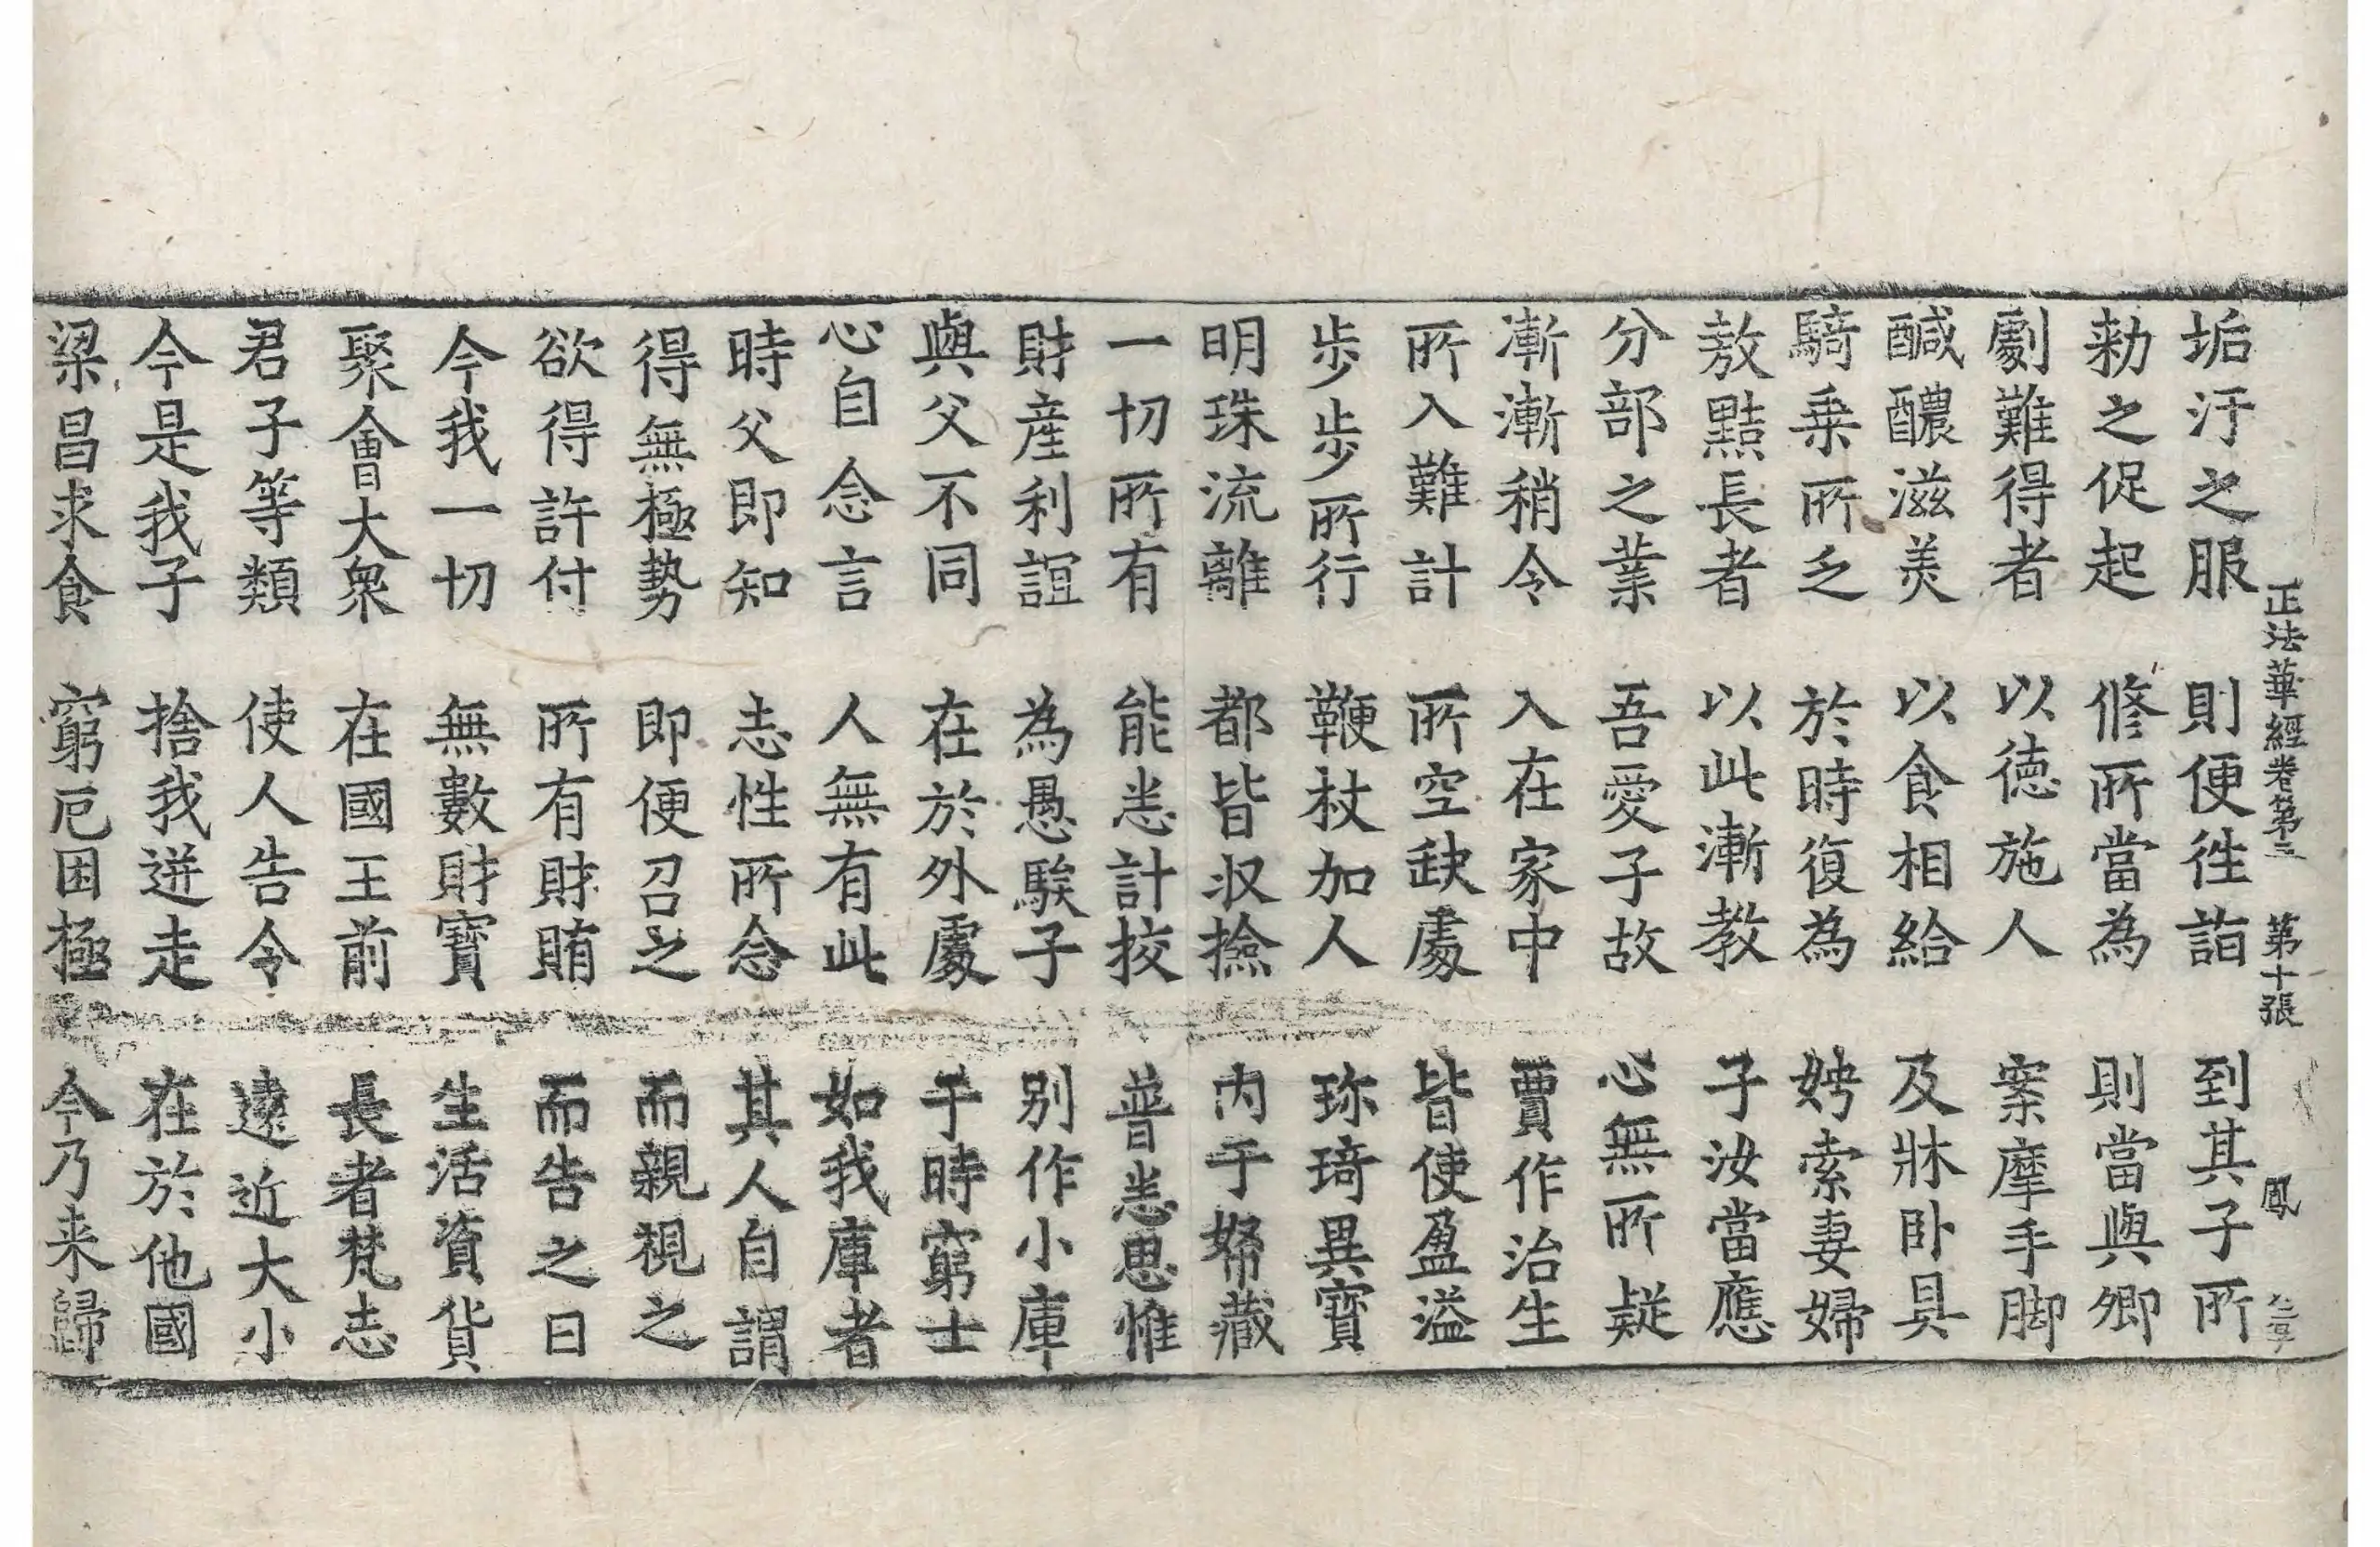 正法華經卷第三 第十張 鳳
垢汙之服 則便徃詣 到其子所
勑之促起 修所當為 則當與卿
劇難得者 以德施人 案摩手脚
醎醲滋美 以食相給 及牀卧具
騎乗所乏 於時復為 娉索妻婦
敖黠長者 以此漸教 子汝當應
分部之業 吾愛子故 心無所疑
漸漸稍令 入在家中 賈作治生
所入難計 所空缺處 皆使盈溢
步步所行 鞭杖加人 珎琦異寶
明珠流離 都皆収撿 内于帑藏
一切所有 能悉計挍 普悉思惟
財産利誼 為愚騃子 別作小庫
與父不同 在於外處 于時窮士
心自念言 人無有此 如我庫者
時父即知 志性所念 其人自謂
得無極勢 即便召之 而親視之
欲得許付 所有財賄 而告之曰
今我一切 無數財寶 生活資貨
聚會大衆 在國王前 長者梵志
君子等類 使人告令 遠近大小
今是我子 捨我迸走 在於他國
梁昌求食 窮厄困極 今乃来歸